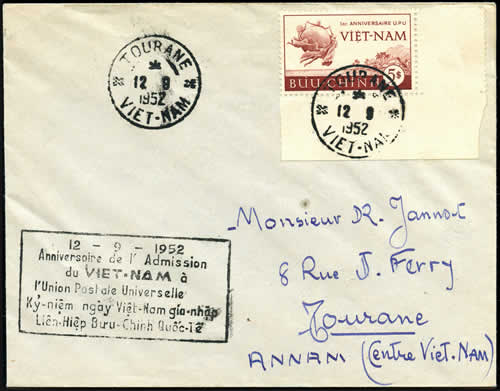 TOURANE
12 9
1952
VIET-NAM
1er ANNIVERSAIRE U.P.U
VIỆT-NAM
BƯU-CHÍNH 5$
TOURANE
12 9
1952
VIET-NAM
12 - 9 - 1952
Anniversoire de l' Admission
du VIET-NAM à
l'Union Postale Universelle
Kỷ-niệm ngày Việt-Nam gia-nhập
Liên-Hiệp Bưu-Chính Quốc-Tế
Monsieur R. Jannot
8 Rue J. Ferry
Tourane
ANNAM (Centre Viet-Nam)